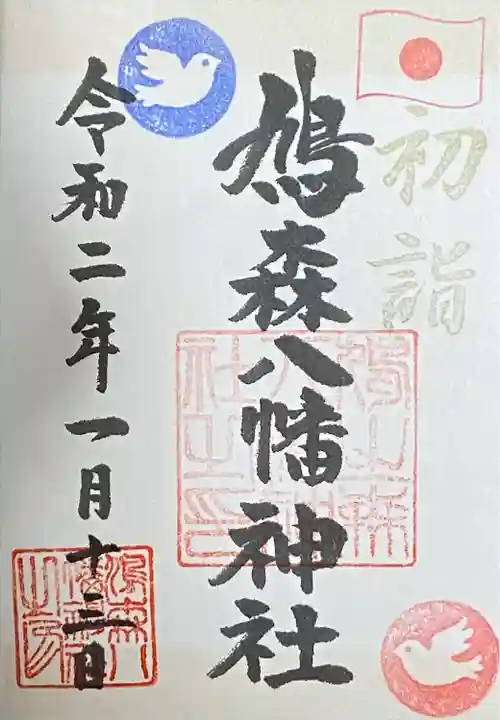 初詣
鳩森八幡神社
令和二年一月十二日